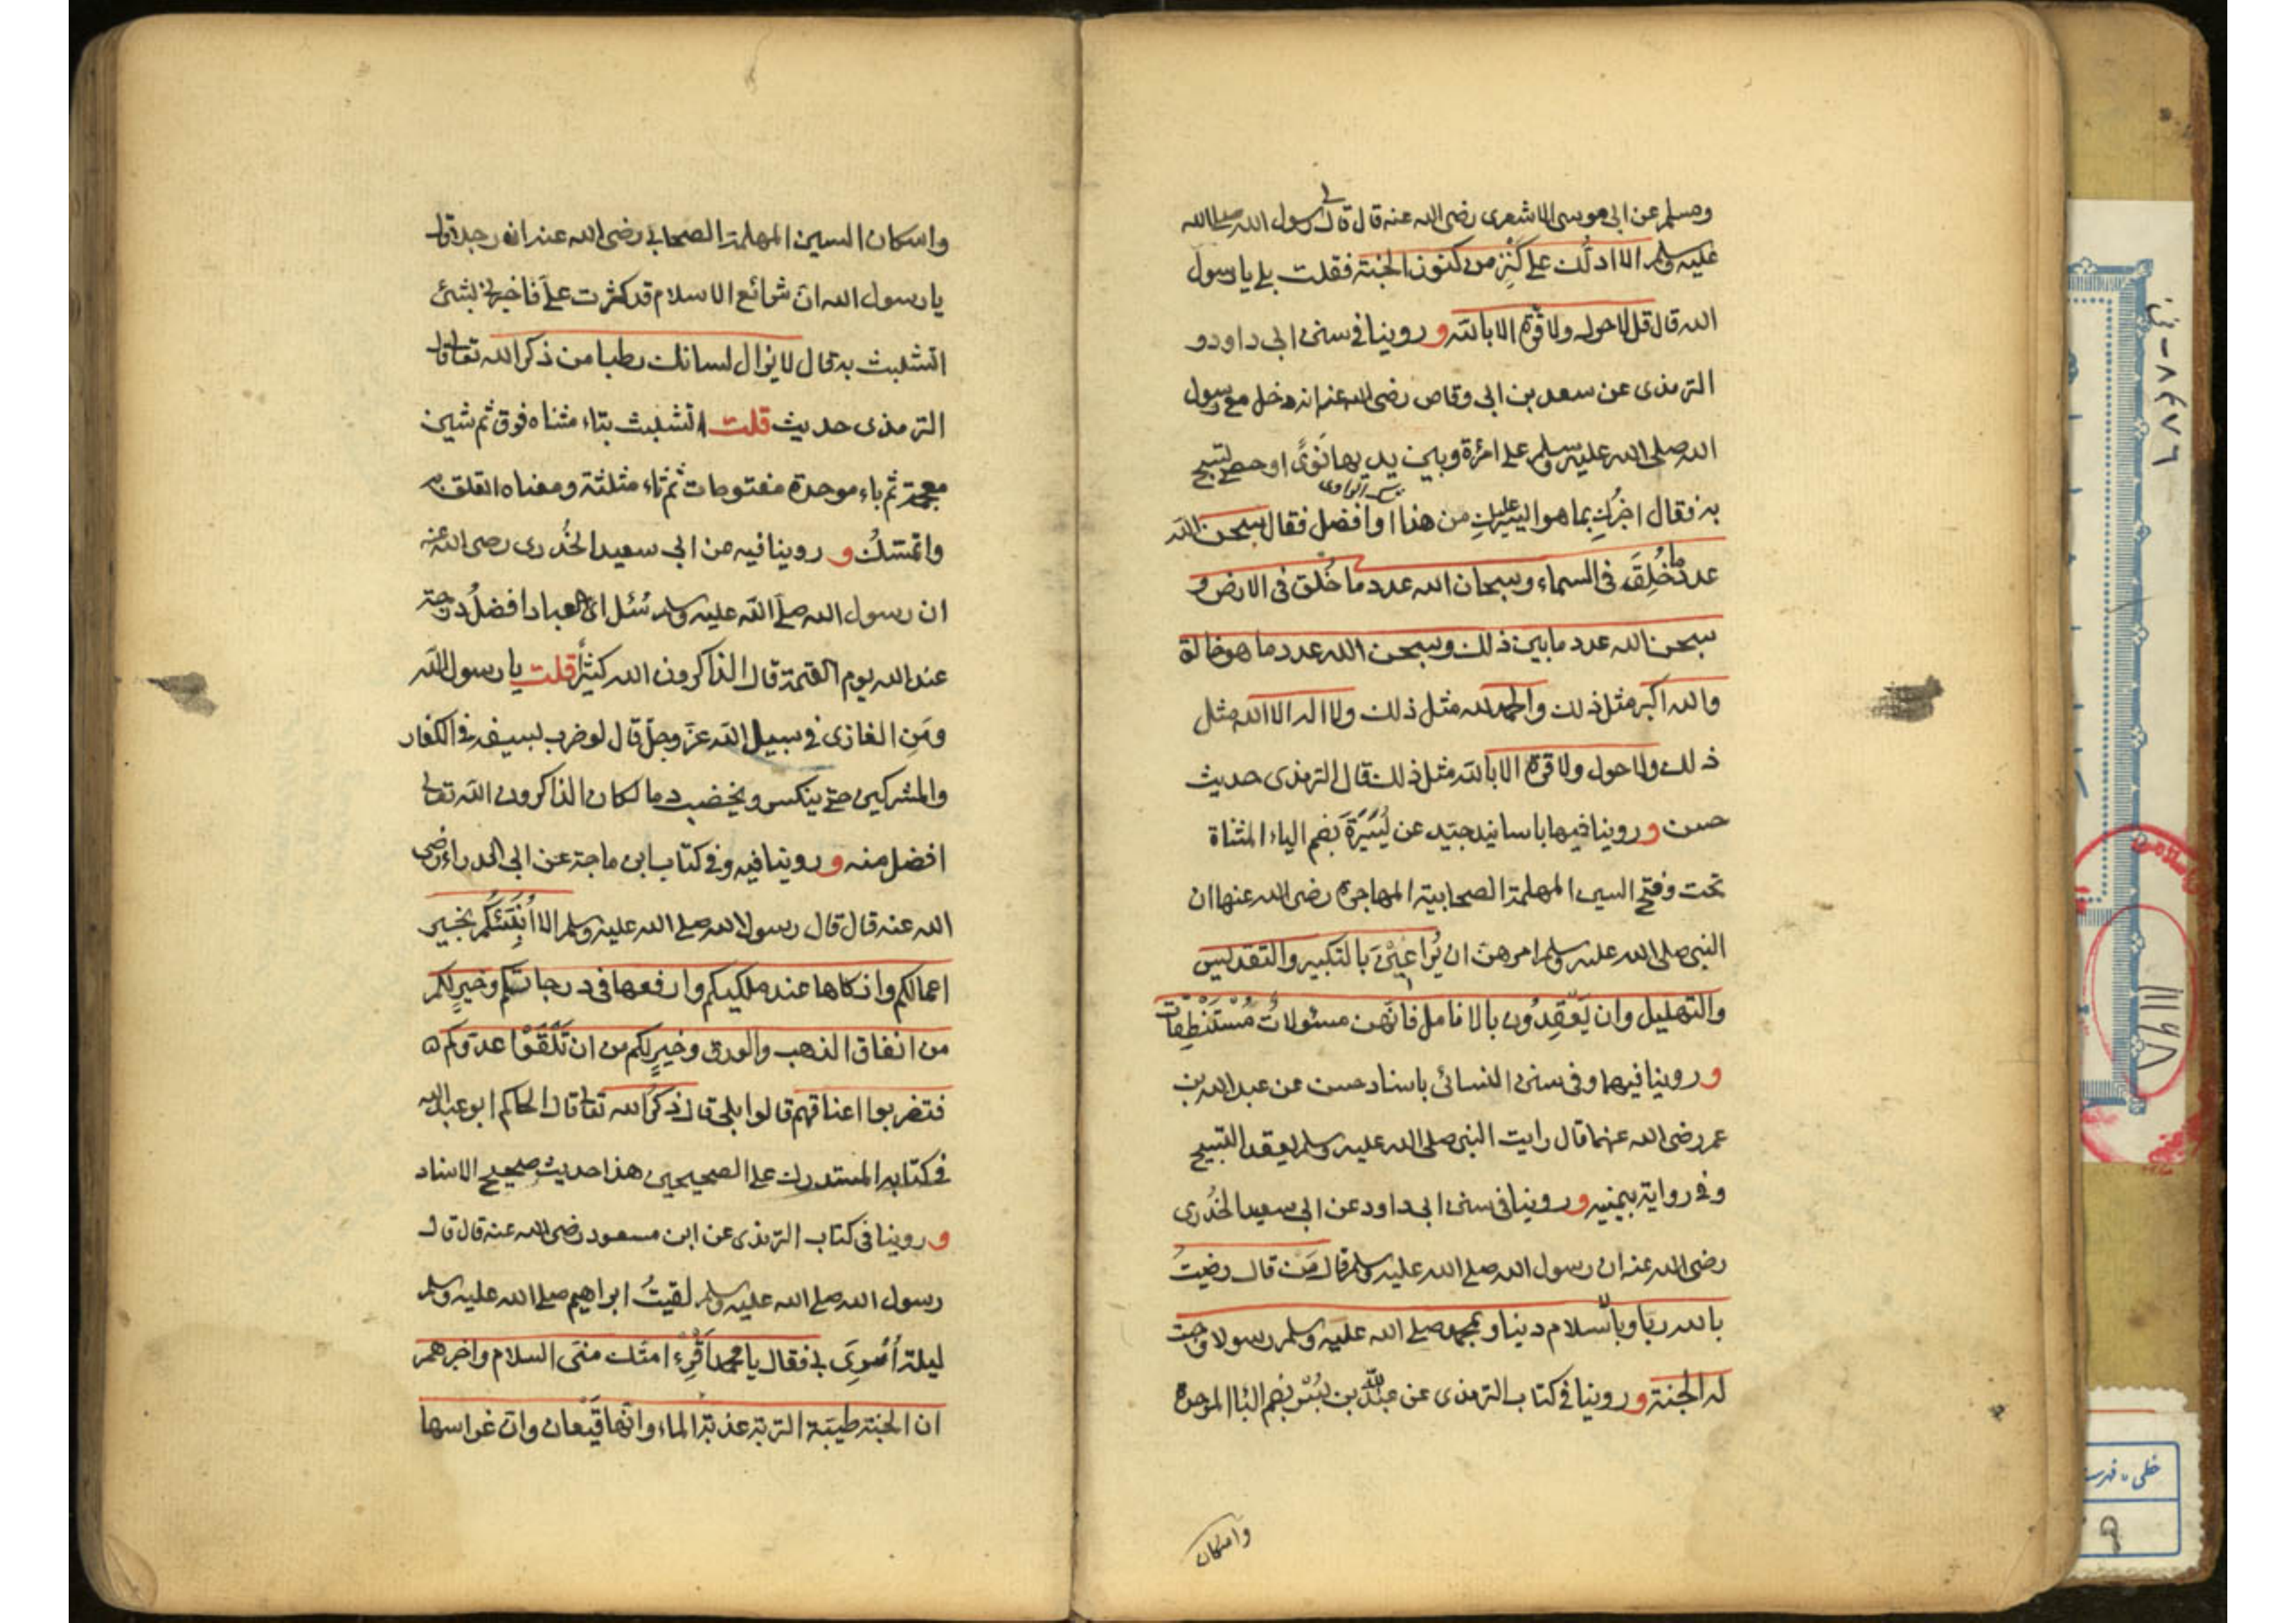 ومسلم عن ابى موسى الاشعرى رضى الله عنه قال قال لى رسول الله صلى الله
عليه وسلم الا ادلّك على كَنْزٍ من كنوز الجنة فقلت بلى يا رسول
الله قال قل لا حول ولا قوّة الا بالله و روينا فى سنن ابى داود و
الترمذى عن سعد بن ابى وقاص رضى الله عنه انه دخل مع رسول
الله صلى الله عليه وسلم على امرٔة وبين يديها نَوًى او حصى تسبح
به فقال اخبرُكِ بما هو ايسر عليكِ من هذا او افضل فقال سبحن الله
شك الراوى
عدد ما خُلِقَ فى السماء وسبحان الله عدد ما خُلق فى الارض و
سبحن الله عدد ما بين ذلك وسبحن الله عدد ما هو خالق
والله اكبر مثل ذلك والحمد لله مثل ذلك ولا اله الا الله مثل
ذلك ولا حول ولا قوة الا بالله مثل ذلك قال الترمذى حديث
حسن و روينا فيها باسانيد جيّد عن يُسَيْرَةَ بضم الياء المثناة
تحت وفتح السين المهملة الصحابية المهاجرة رضى الله عنها ان
النبى صلى الله عليه وسلم امرهن ان يُراعِيْنَ بالتكبير والتقديس
والتهليل وان يَعْقِدُون بالانامل فانّهن مسئولاتٌ مُسْتَنْطِقات
و روينا فيهما وفى سنن النسائى باسناد حسن عن عبد الله بن
عمر رضى الله عنهما قال رايت النبى صلى الله عليه وسلم يعقد التسبيح
وفى رواية بيمينه و روينا فى سنن ابى داود عن ابى سعيد الخُدرى
رضى الله عنه ان رسول الله صلى الله عليه وسلم قال مَن قال رضيتُ
بالله ربّا وبالاسلام دينا وبمحمد صلى الله عليه وسلم رسولا وجبت
له الجنة و روينا فى كتاب الترمذى عن عبد الله بن بُسْر بضم البا الموحدة
واسكان
واسكان السين المهملة الصحابى رضى الله عنه ان رجلا قال
يا رسول الله ان شرائع الاسلام قد كثرت علىّ فاخبرنى بشئ
اتشبث به قال لا يزال لسانك رطبا من ذكر الله تعالى قال
الترمذى حديث قلت اتشبث بتاء مثناه فوق ثم شين
معجمة ثم باء موحدة مفتوحات ثم ثاء مثلثة ومعناه اتعلق به
واتمسّكُ و روينا فيه من ابى سعيد الخُدرى رضى الله عنه
ان رسول الله صلى الله عليه وسلم سُئل اىّ العباد افضلُ درجة
عند الله يوم القيمة قال الذاكرون الله كثيرًا قلت يا رسول الله
ومَنِ الغازى فى سبيل الله عزّ وجلّ قال لو ضرب بسيفه فى الكفار
والمشركين حتى ينكسر ويخضب دما لكان الذاكرون الله تعالى
افضل منه و روينا فيه وفى كتاب ابن ماجة عن ابى الدراء رضى
الله عنه قال قال رسول الله صلى الله عليه وسلم الا اُنَبِّئُكُم بخير
اعمالكم وازكاها عند مليككم وارفعها فى درجاتكم وخيرٍ لكم
من انفاق الذهب والورق وخيرٍ لكم من ان تَلْقَوْا عدوّكم
فتضربوا اعناقهم قالوا بلى قال ذكرُ الله تعالى قال الحاكم ابو عبد الله
فى كتابه المستدرك على الصحيحين هذا حديث صحيح الاسناد
و روينا فى كتاب الترمذى عن ابن مسعود رضى الله عنه قال قال
رسول الله صلى الله عليه وسلم لقيتُ ابراهيم صلى الله عليه وسلم
ليلة اُسْرِىَ بى فقال يا محمد اَقْرِءْ امتك منّى السلام واخبرهم
ان الجنة طيبة التربة عذبة الماء وانّها قِيْعان وان غراسها
خطى ـ فهرست